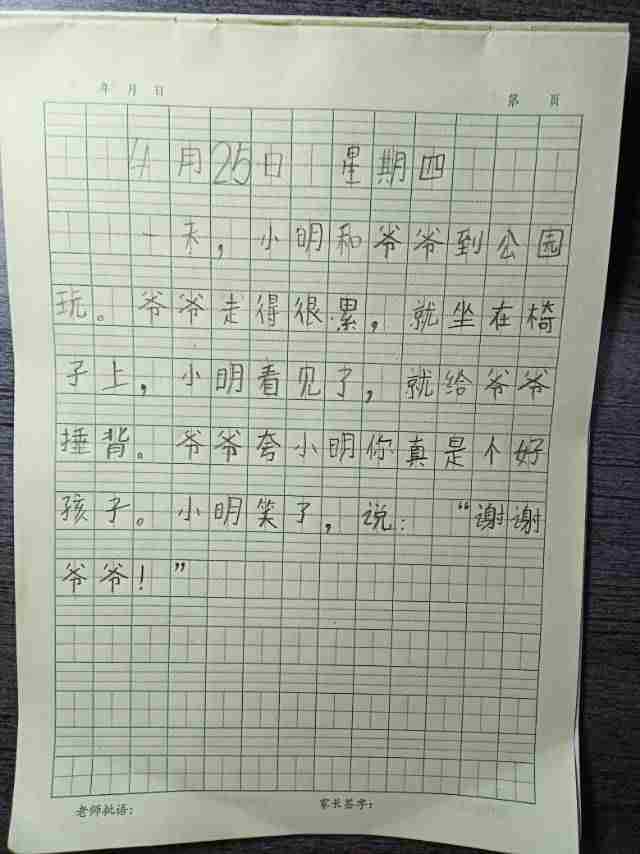 年 月 日 第 页
4月25日 星期四
一天，小明和爷爷到公园
玩。爷爷走得很累，就坐在椅
子上，小明看见了，就给爷爷
捶背。爷爷夸小明你真是个好
孩子。小明笑了，说：“谢谢
爷爷！”
老师批语： 家长签字：